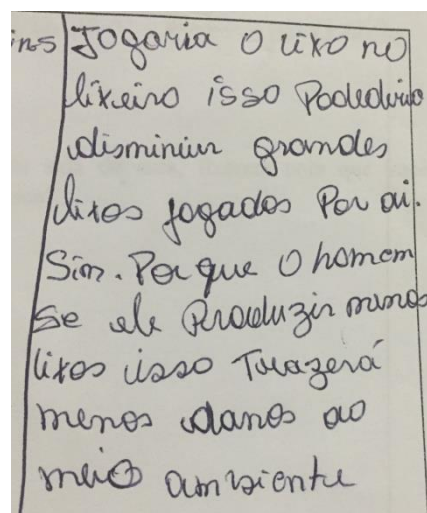 ins Jogaria o lixo no
lixeiro isso Poderiria
disminiur grandes
lixos jogados Por ai.
Sim. Por que o homem
se ele Produzir menos
lixos isso Trazerá
menos danos ao
meio ambiente